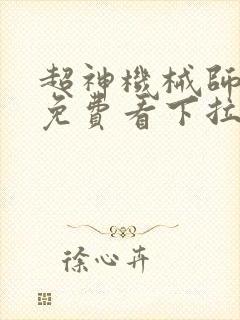 超神機械師
免費看下拉
徐心卉